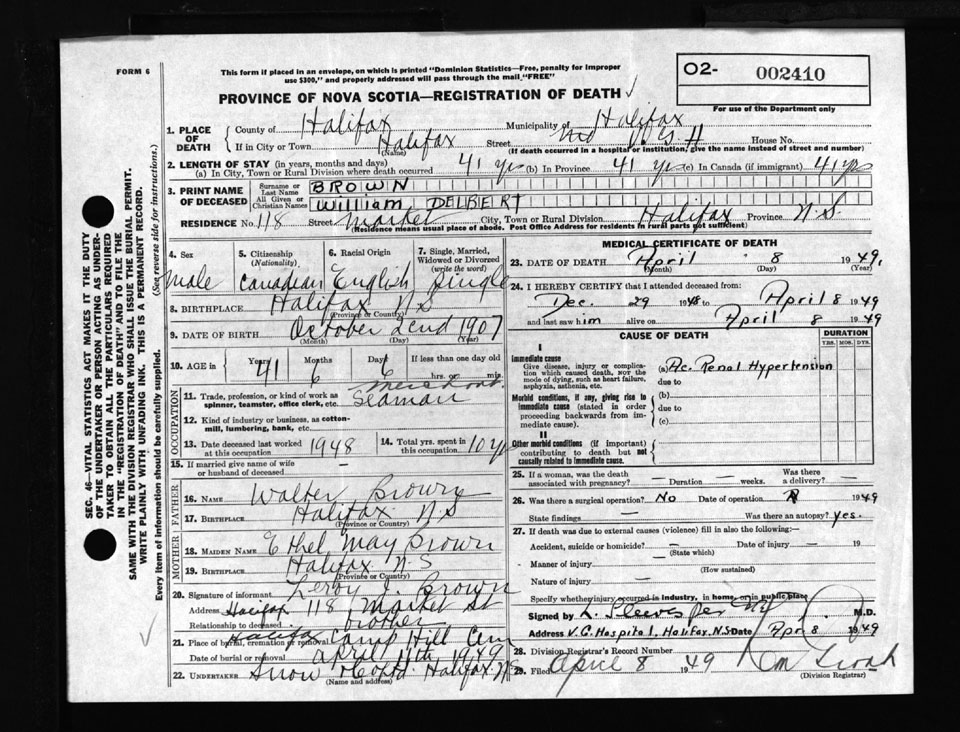 FORM 6
This form if placed in an envelope, on which is printed "Dominion Statistics—Free, penalty for improper
use $300," and properly addressed will pass through the mail "FREE"
O2- 002410
For use of the Department only
PROVINCE OF NOVA SCOTIA—REGISTRATION OF DEATH
1. PLACE OF DEATH { County of Halifax Municipality of Halifax
If in City or Town Halifax (Name) Street V. G. H House No.
(If death occurred in a hospital or institution, give the name instead of street and number)
2. LENGTH OF STAY (in years, months and days)
(a) In City, Town or Rural Division where death occurred 41 yrs (b) In Province 41 yrs (c) In Canada (if immigrant) 41 yrs
3. PRINT NAME OF DECEASED { Surname or Last Name BROWN
All Given or Christian Names William, DELBERT
RESIDENCE No. 118 Street Market City, Town or Rural Division Halifax Province N.S.
(Residence means usual place of abode. Post Office Address for residents in rural parts not sufficient)
4. Sex 5. Citizenship (Nationality) 6. Racial Origin 7. Single, Married, Widowed or Divorced (write the word)
male Canadian English Single
8. BIRTHPLACE Halifax N S
(Province or Country)
9. DATE OF BIRTH October 22nd 1907
(Month) (Day) (Year)
10. AGE in { Years 41 Months 6 Days If less than one day old hrs. or min.
OCCUPATION
11. Trade, profession, or kind of work as spinner, teamster, office clerk, etc. Merchant Seaman
12. Kind of industry or business, as cotton-mill, lumbering, bank, etc.
13. Date deceased last worked at this occupation 1948 14. Total yrs. spent in this occupation 10 y
15. If married give name of wife or husband of deceased —
FATHER
16. NAME Walter Brown
17. BIRTHPLACE Halifax N S
(Province or Country)
MOTHER
18. MAIDEN NAME Ethel May Brown
19. BIRTHPLACE Halifax N.S
(Province or Country)
20. Signature of informant Leroy J. Brown
Address Halifax 118 Market St
Relationship to deceased brother
21. Place of burial, cremation or removal Halifax Camp Hill Cem
Date of burial or removal April 11th 1949
22. UNDERTAKER Snow & Co Halifax N.S
(Name and address)
MEDICAL CERTIFICATE OF DEATH
23. DATE OF DEATH April 8 1949.
(Month) (Day) (Year)
24. I HEREBY CERTIFY that I attended deceased from:
Dec. 29 1948 to April 8 1949
and last saw him alive on April 8 1949
CAUSE OF DEATH
DURATION
YRS. MOS. DYS.
I
Immediate cause
Give disease, injury or complication which caused death, not the mode of dying, such as heart failure, asphyxia, asthenia, etc.
(a) Ac. Renal Hypertension
due to
Morbid conditions, if any, giving rise to immediate cause (stated in order proceeding backwards from immediate cause).
(b)
due to
(c)
II
Other morbid conditions (if important) contributing to death but not causally related to immediate cause.
25. If a woman, was the death associated with pregnancy? — Duration — weeks. Was there a delivery? —
26. Was there a surgical operation? No Date of operation 1949
State findings — Was there an autopsy? Yes.
27. If death was due to external causes (violence) fill in also the following:—
Accident, suicide or homicide? — Date of injury — 19
(State which)
Manner of injury
(How sustained)
Nature of injury —
Specify whether injury occurred in industry, in home, or in public place
Signed by L. Sleeves per M.D.
Address V.G. Hospital, Halifax, N.S. Date Apr 8 1949
28. Division Registrar's Record Number
29. Filed April 8 1949
(Division Registrar)
SEC. 46—VITAL STATISTICS ACT MAKES IT THE DUTY
OF THE UNDERTAKER OR PERSON ACTING AS UNDER-
TAKER TO OBTAIN ALL THE PARTICULARS REQUIRED
IN THE "REGISTRATION OF DEATH" AND TO FILE THE
SAME WITH THE DIVISION REGISTRAR WHO SHALL ISSUE THE BURIAL PERMIT.
WRITE PLAINLY WITH UNFADING INK. THIS IS A PERMANENT RECORD.
Every item of information should be carefully supplied. (See reverse side for instructions.)